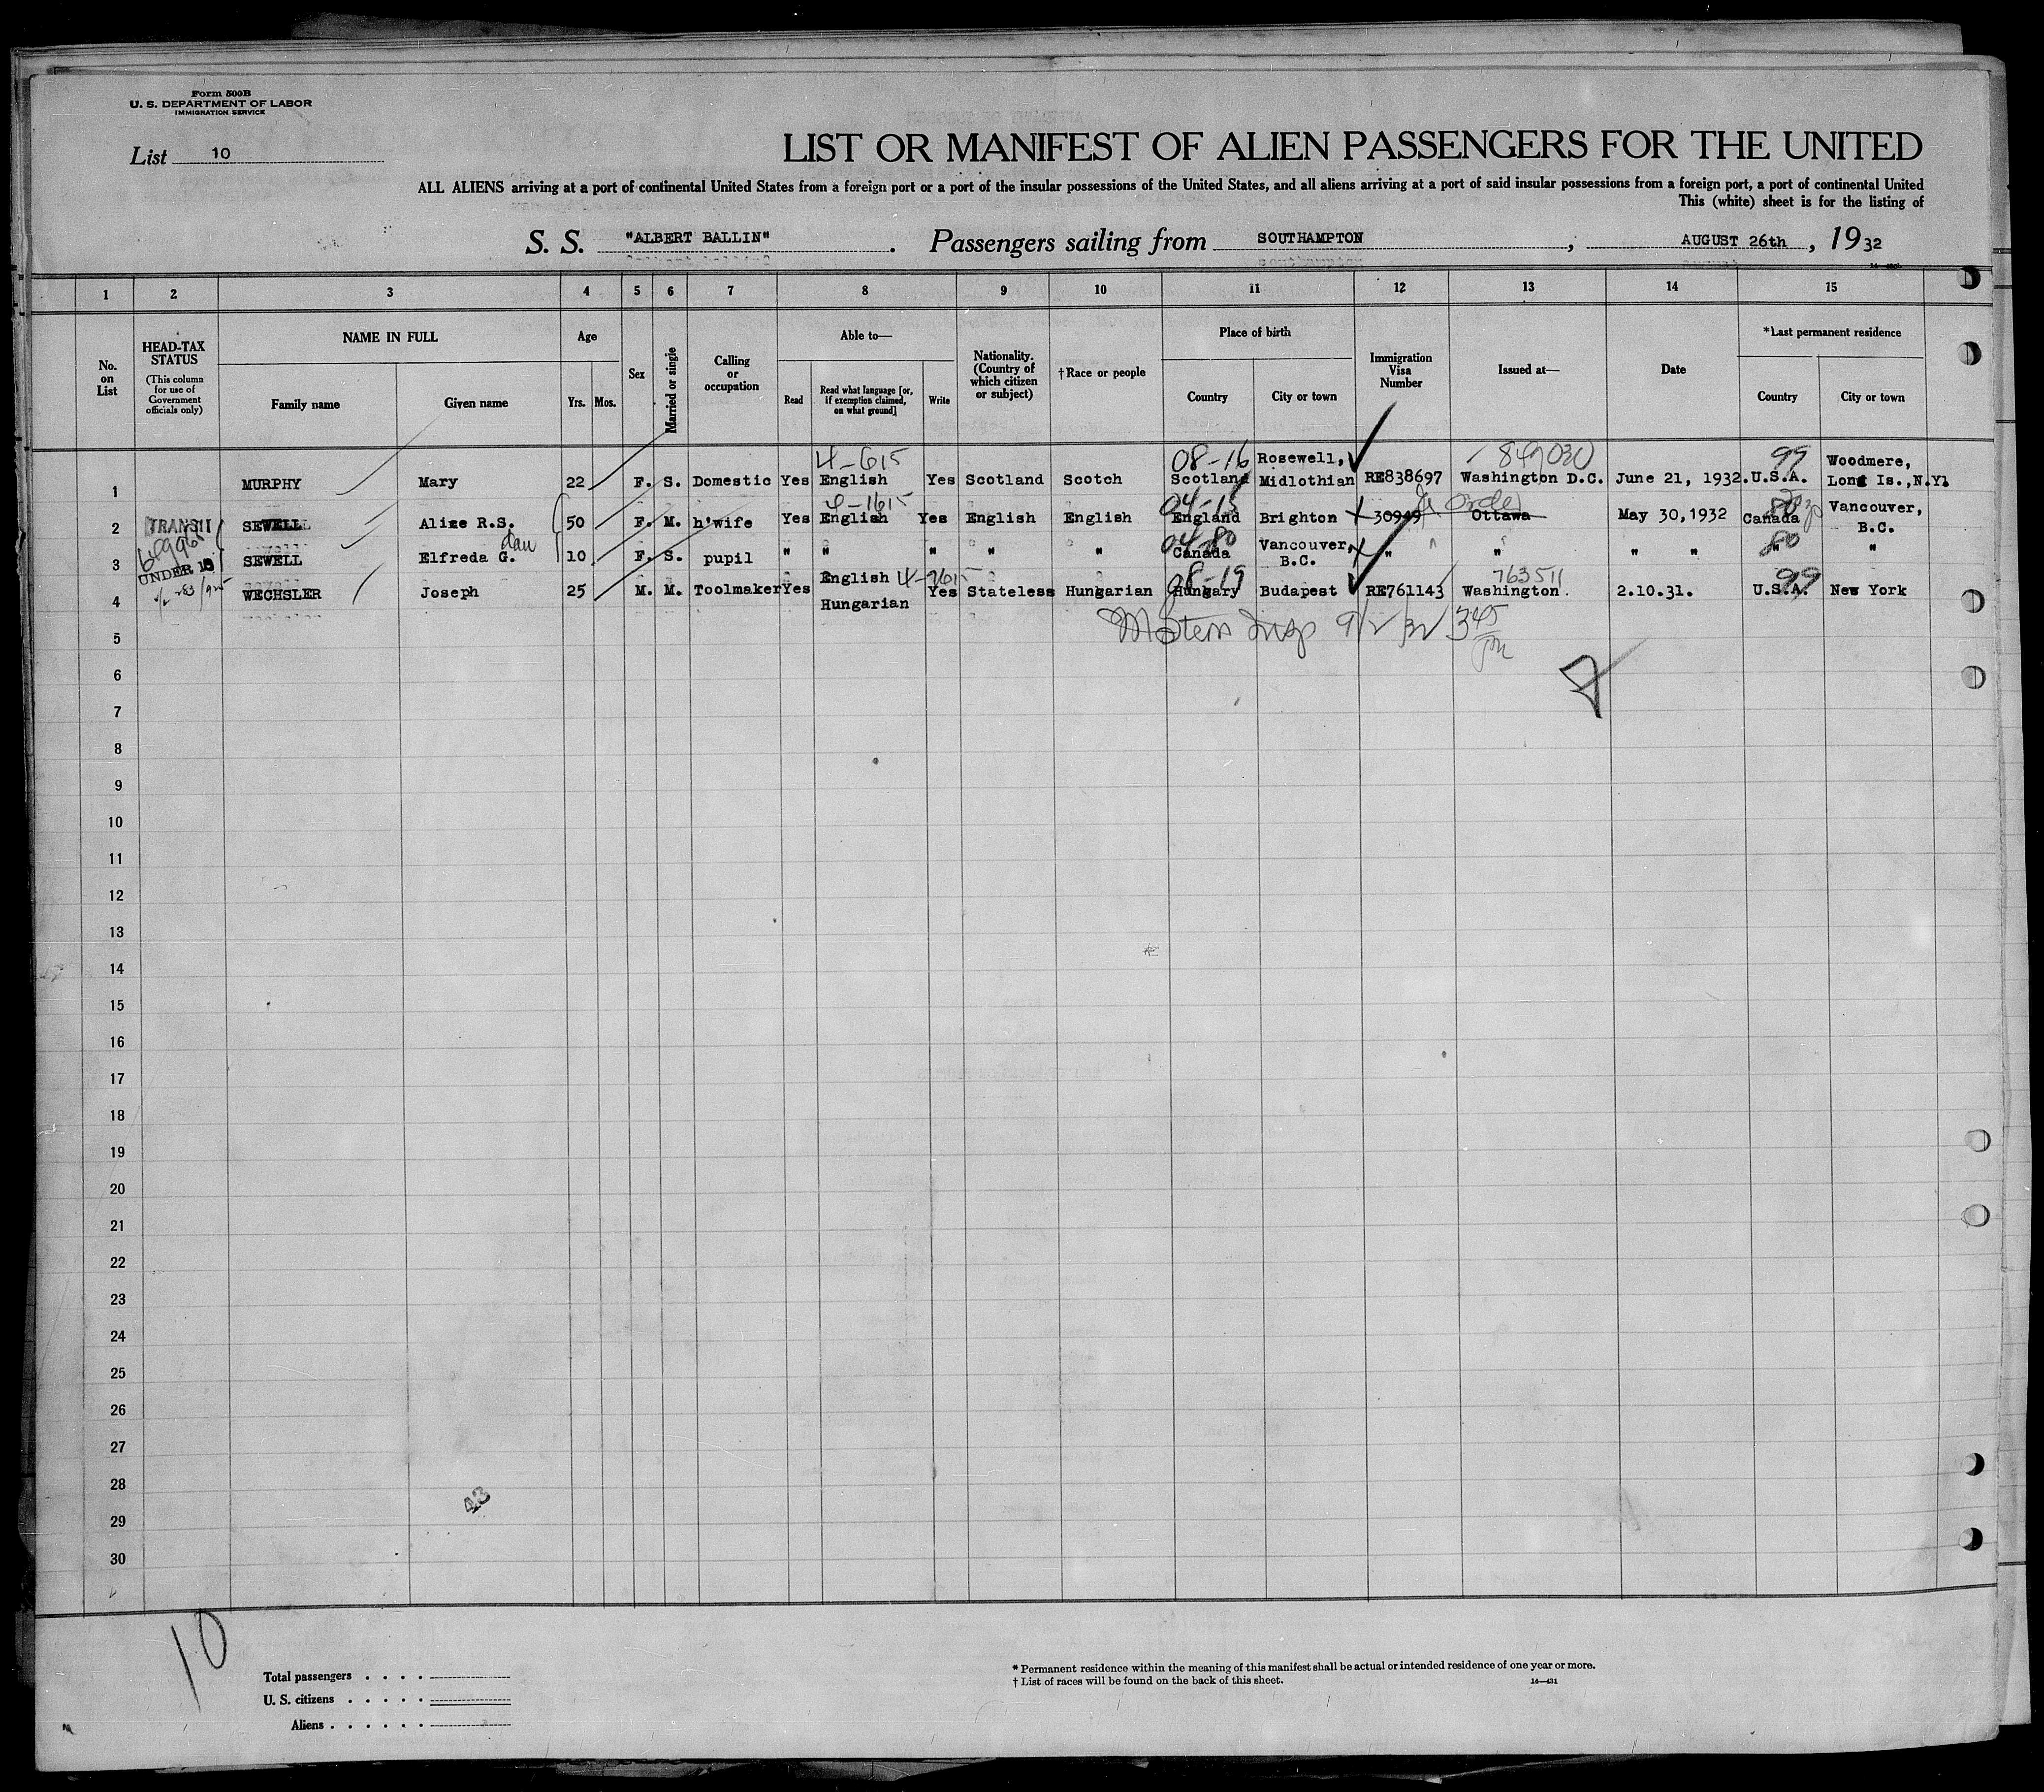 Form 500B
U. S. DEPARTMENT OF LABOR
IMMIGRATION SERVICE
List 10
LIST OR MANIFEST OF ALIEN PASSENGERS FOR THE UNITED
ALL ALIENS arriving at a port of continental United States from a foreign port or a port of the insular possessions of the United States, and all aliens arriving at a port of said insular possessions from a foreign port, a port of continental United
This (white) sheet is for the listing of
S. S. "ALBERT BALLIN" . Passengers sailing from SOUTHAMPTON , AUGUST 26th , 1932
1 2 3 4 5 6 7 8 9 10 11 12 13 14 15
No. on List
HEAD-TAX STATUS
(This column for use of Government officials only)
NAME IN FULL
Family name Given name
Age
Yrs. Mos.
Sex
Married or single
Calling or occupation
Able to—
Read
Read what language [or, if exemption claimed, on what ground]
Write
Nationality. (Country of which citizen or subject)
†Race or people
Place of birth
Country City or town
Immigration Visa Number
Issued at—
Date
*Last permanent residence
Country City or town
4-615 08-16 Rosewell, 849030 99 Woodmere,
1 MURPHY Mary 22 F. S. Domestic Yes English Yes Scotland Scotch Scotland Midlothian RE838697 Washington D.C. June 21, 1932. U.S.A. Long Is.,N.Y.
4-1615 04-15
2 TRANSIT SEWELL Alice R.S. 50 F. M. h'wife Yes English Yes English English England Brighton 30949 Ottawa May 30,1932 Canada Vancouver, B.C.
dau 04-80 80
3 UNDER 16 SEWELL Elfreda G. 10 F. S. pupil " " " " " Canada Vancouver, B.C. " " " " " "
4-1615 08-19 763511 99
4 WECHSLER Joseph 25 M. M. Toolmaker Yes English Hungarian Yes Stateless Hungarian Hungary Budapest RE761143 Washington. 2.10.31. U.S.A. New York
5 Insp 9/2/32 345
6
7
8
9
10
11
12
13
14
15
16
17
18
19
20
21
22
23
24
25
26
27
28
43
29
30
10
Total passengers . . . .
U. S. citizens . . . . .
Aliens . . . . . .
* Permanent residence within the meaning of this manifest shall be actual or intended residence of one year or more.
† List of races will be found on the back of this sheet.
14—431